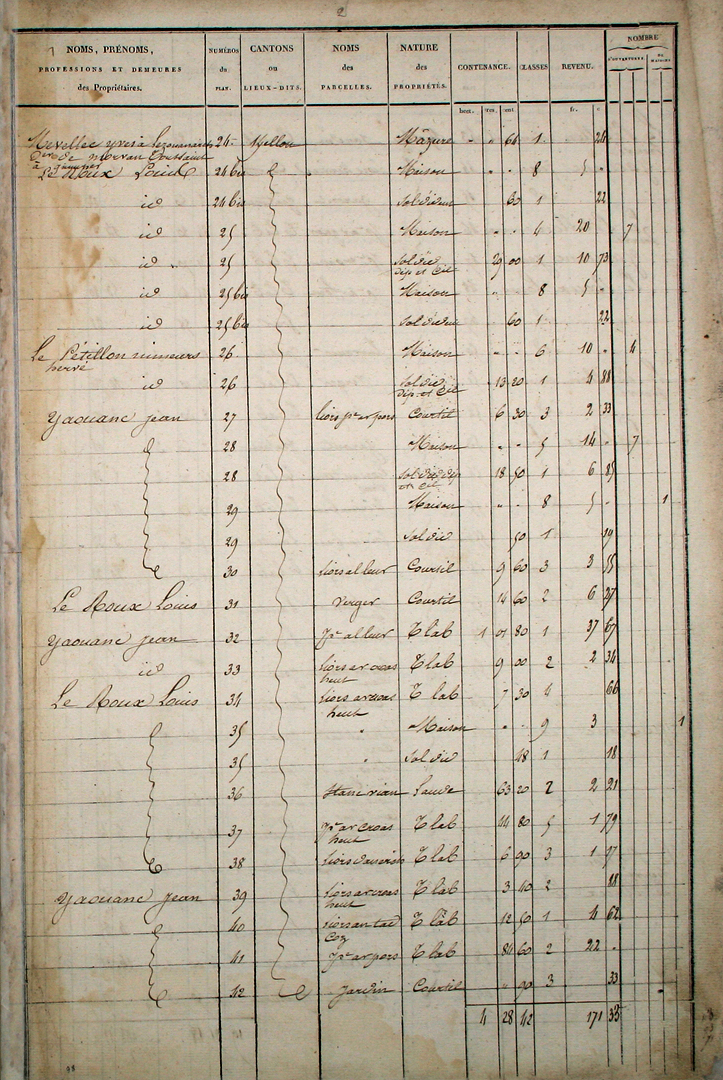 2
NOMS, PRÉNOMS, PROFESSIONS ET DEMEURES des Propriétaires. NUMÉROS du PLAN. CANTONS ou LIEUX-DITS. NOMS des PARCELLES. NATURE des PROPRIÉTÉS. CONTENANCE. CLASSES. REVENU. NOMBRE D'OUVERTURES
hect. ares. cent. fr. c.
24 Mellou Mâzure " " 64 1 24
de morvan
Le Roux Louis 24 bis Maison " " 8 5 "
id 24 bis Sol 60 1 22
id 25 Maison " " 4 20 7
id 25 Sol dud 29 00 1 10 73
dép et
id 25 bis Maison " 8 5 "
id 25 bis Sol 60 1 22
Le Pétillon mineurs 26 Maison " " 6 10 " 4
hervé
id 26 Sol dud 13 20 1 4 88
dép et
Yaouanc jean 27 liors pr ar pors Courtil 6 30 3 2 33
28 Maison " " 5 14 " 7
28 Sol dud dép 18 50 1 6 85
et
29 Maison " " 8 5 " 1
29 Sol dud 50 1 19
30 liors al leur Courtil 9 60 3 3 55
Le Roux Louis 31 verger Courtil 14 60 2 6 27
Yaouanc jean 32 pr al leur T lab 1 01 80 1 37 67
id 33 liors ar croas T lab 9 00 2 2 34
heut
Le Roux Louis 34 liors ar croas T lab 7 30 4 66
heut
35 " Maison " " 9 3 1
35 " Sol dud 48 1 18
36 stanc vian Lande 63 20 2 2 21
37 pr ar croas T lab 44 80 5 1 79
heut
38 liors T lab 6 90 3 1 77
Yaouanc jean 39 liors ar croas T lab 3 40 2 88
heut
40 liors an tad T lab 12 50 1 4 62
Coz
41 pr ar pors T lab 84 60 2 22 "
42 jardin Courtil " 90 3 33
4 28 42 171 33